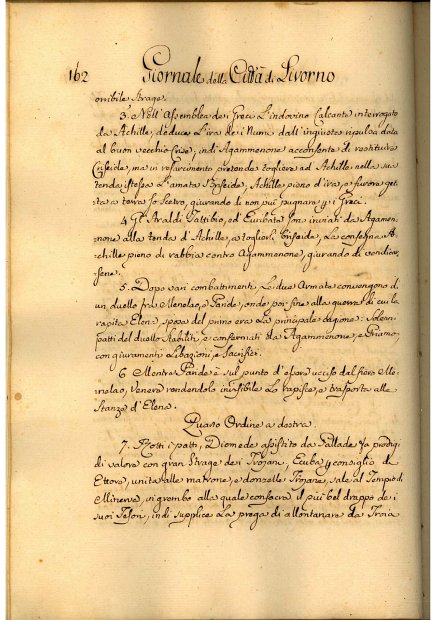 162 Giornale della Città di Livorno
orribile strage.
3. Nell' Assemblea dei Greci L'indovino Calcante interrogato
da Achille, deduce L'ira dei Numi dall'ingiusta ripulsa data
al buon vecchio Crise, indi Agamennone acconsente di restituire
Criseide, ma in risarcimento pretende togliere ad Achille nella sua
tenda istessa L'amata Briseide, Achille pieno d'ira, e furore getta
a terra lo Scetro, giurando di non più pugnare p. i Greci.
4. Gl' Araldi Taltibio, ed Euribate sono inviati da Agamen-
none alla tenda d'Achille, a toglierli Briseide, La consegna A-
chille pieno di rabbia contro Agamennone, giurando di vendicar-
sene.
5. Dopo varj combattimenti Le due Armate convengono di
un duello frà Menelao, e Paride, onde por fine alla guerra di cui la
rapita Elena, sposa del primo era La principale cagione: Solenni
patti del duello stabiliti, e confermati da Agamennone, e Priamo,
con giuramenti Libazioni, e Sacrifizi.
6. Mentre Paride è sul punto d'essere ucciso dal fiero Me-
nelao, Venere rendendolo invisibile Lo rapisce, e trasporta alle
Stanze d'Elena.
Quarto Ordine a destra.
7. Rotti i patti, Diomede assistito da Pallade fa prodigj
di valore con gran Strage dei Trojani, Ecuba p. consiglio di
Ettore, unita alle matrone, e donzelle Trojane, sale al Tempio di
Minerva, in grembo alla quale consacra il più bel drappo dei
suoi Tesori, indi supplice La prega di allontanare da Troia